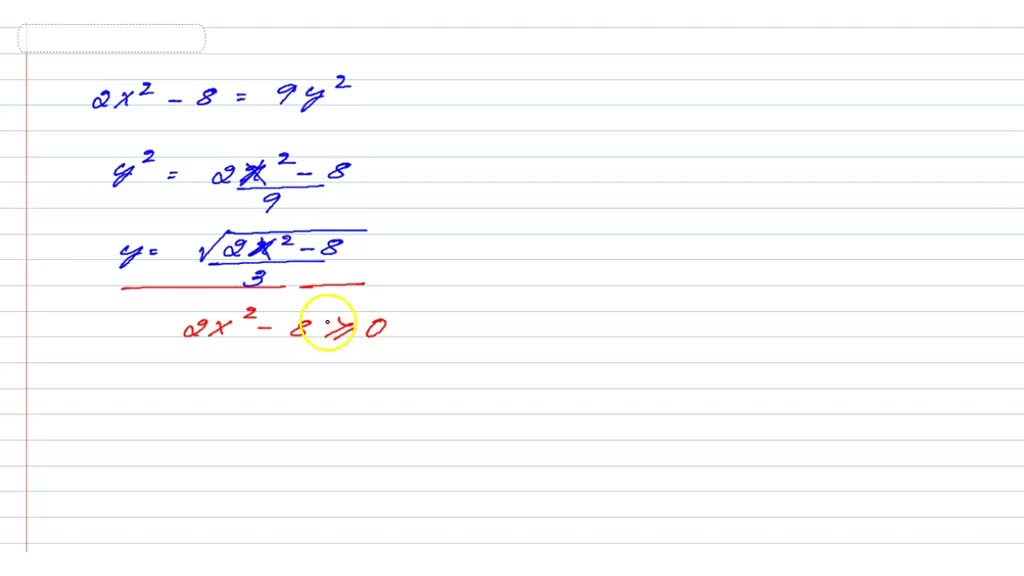 2x² - 8 = 9y²
y² = 2x² - 8 / 9
y = √2x² - 8 / 3
2x² - 8 ≥ 0